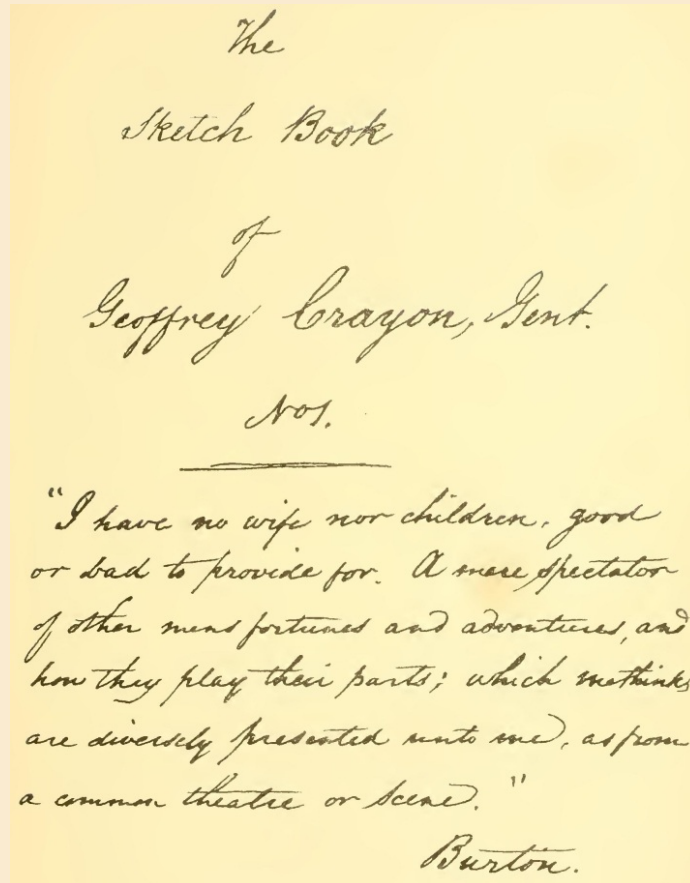 The
Sketch Book
of
Geoffrey Crayon, Gent.
No 1.
"I have no wife nor children, good
or bad to provide for. A mere spectator
of other mens fortunes and adventures, and
how they play their parts; which methinks
are diversely presented unto me, as from
a common theatre or scene."
Burton.